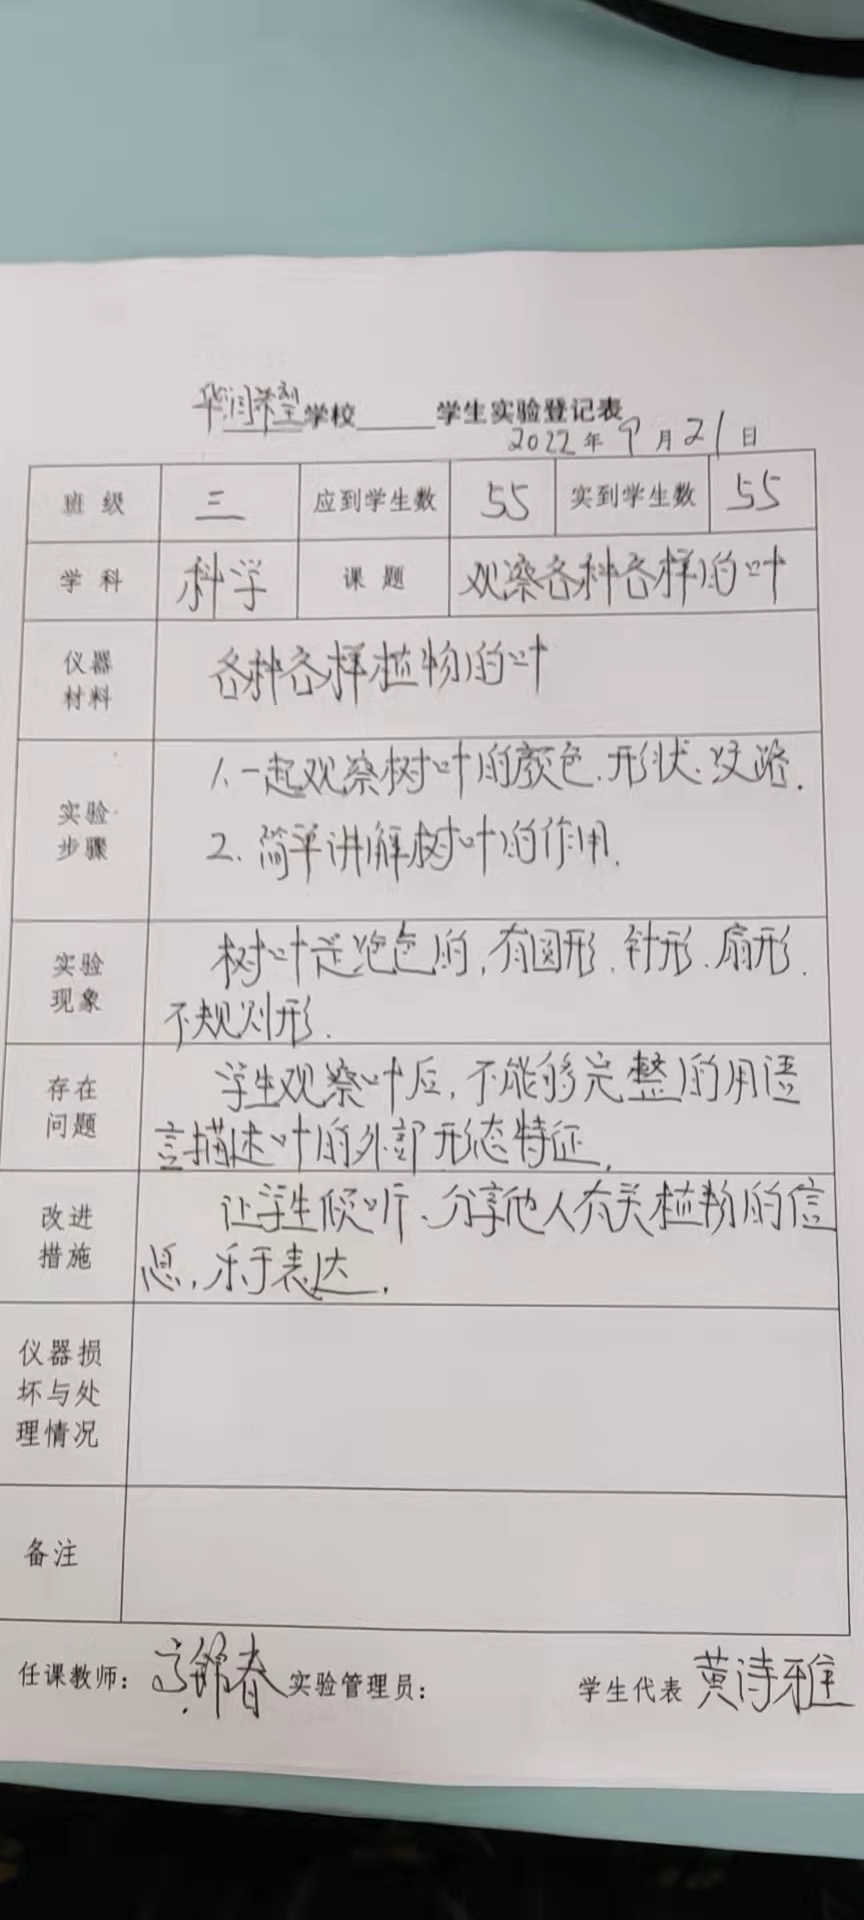 华润希望学校_____学生实验登记表
2022年9月21日
班级 三 应到学生数 55 实到学生数 55
学科 科学 课题 观察各种各样的叶
仪器
材料
各种各样植物的叶
实验
步骤
1.一起观察树叶的颜色、形状、纹路.
2.简单讲解树叶的作用.
实验
现象
树叶是绿色的,有圆形、针形、扇形、
不规则形.
存在
问题
学生观察叶后,不能够完整的用语
言描述叶的外部形态特征.
改进
措施
让学生倾听、分享他人有关植物的信
息,乐于表达.
仪器损
坏与处
理情况
备注
任课教师: 春 实验管理员: 学生代表 黄诗雅